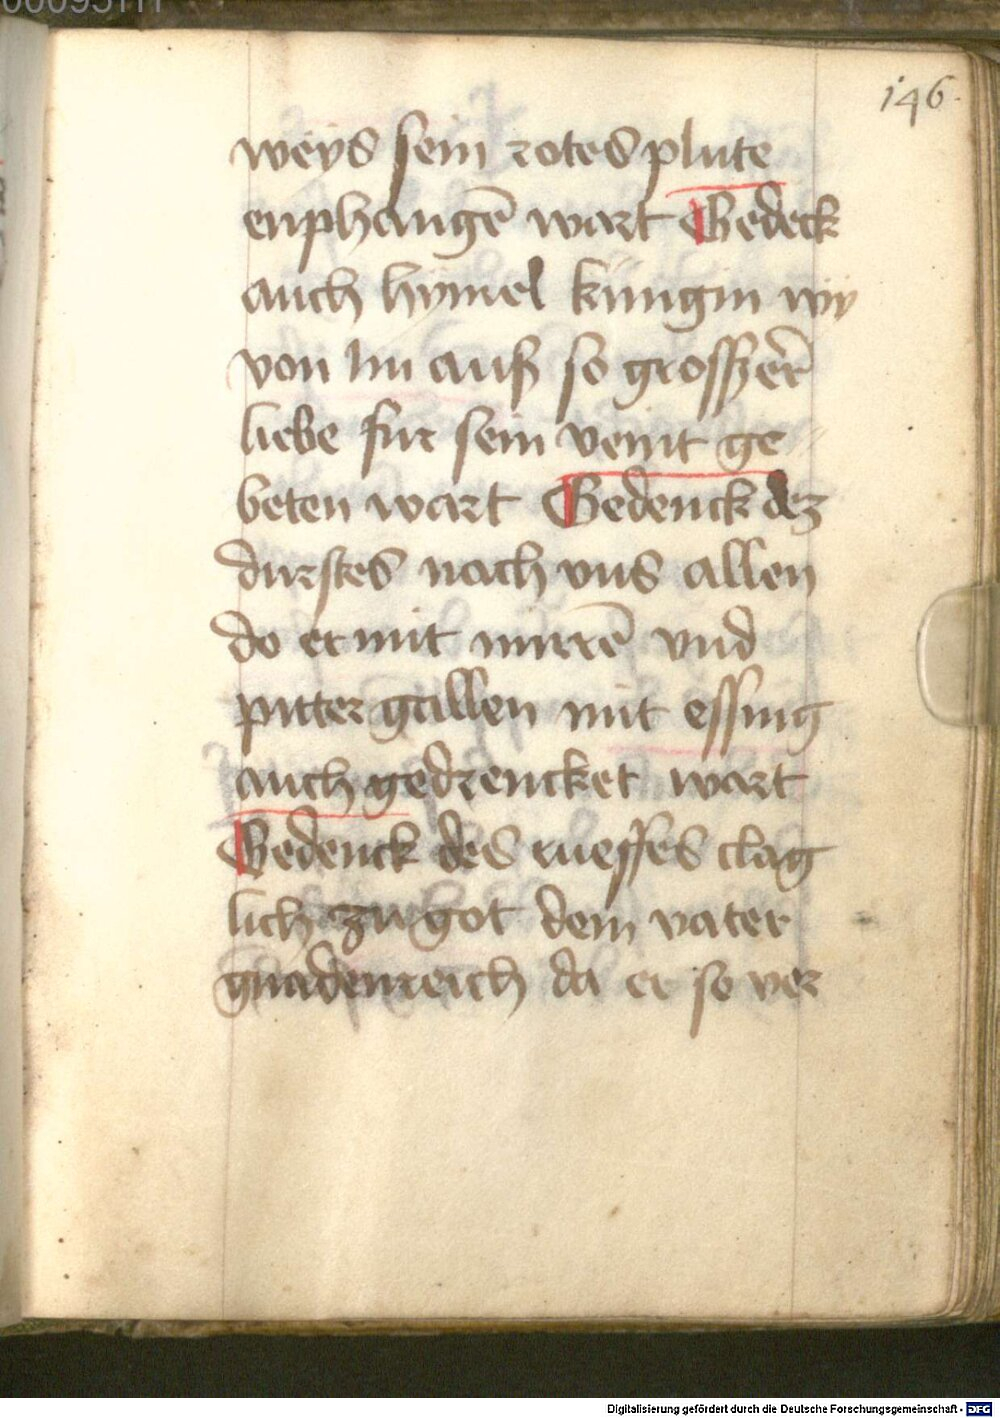 146
weys sein rotes plute
enphangē wart Gedeck
auch hymel küngin wy
von im auß so grosszer
liebe fur sein veint ge
beten wart Gedenck dez
durstes nach vns allen
do er mit mirrē vnd
pitter gallen mit essing
auch gedrencket wart
Gedenck des rueffes clag
lich zu got dem vater
gnadenreich da er so ver
Digitalisierung gefördert durch die Deutsche Forschungsgemeinschaft - DFG